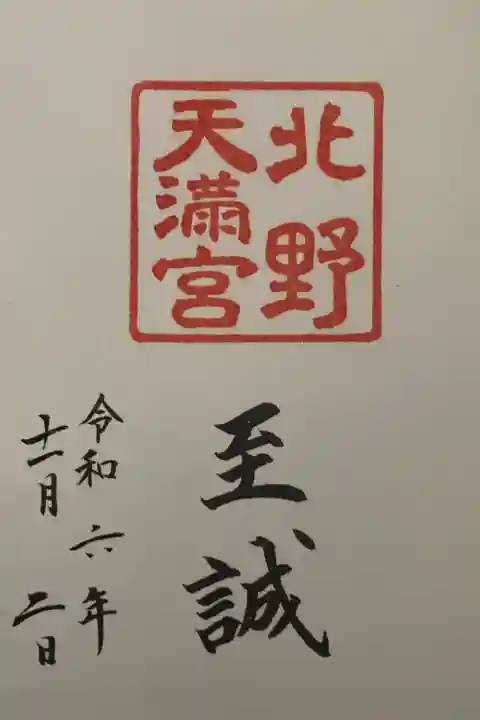 北野
天満宮
至誠
令和六年
十一月二日